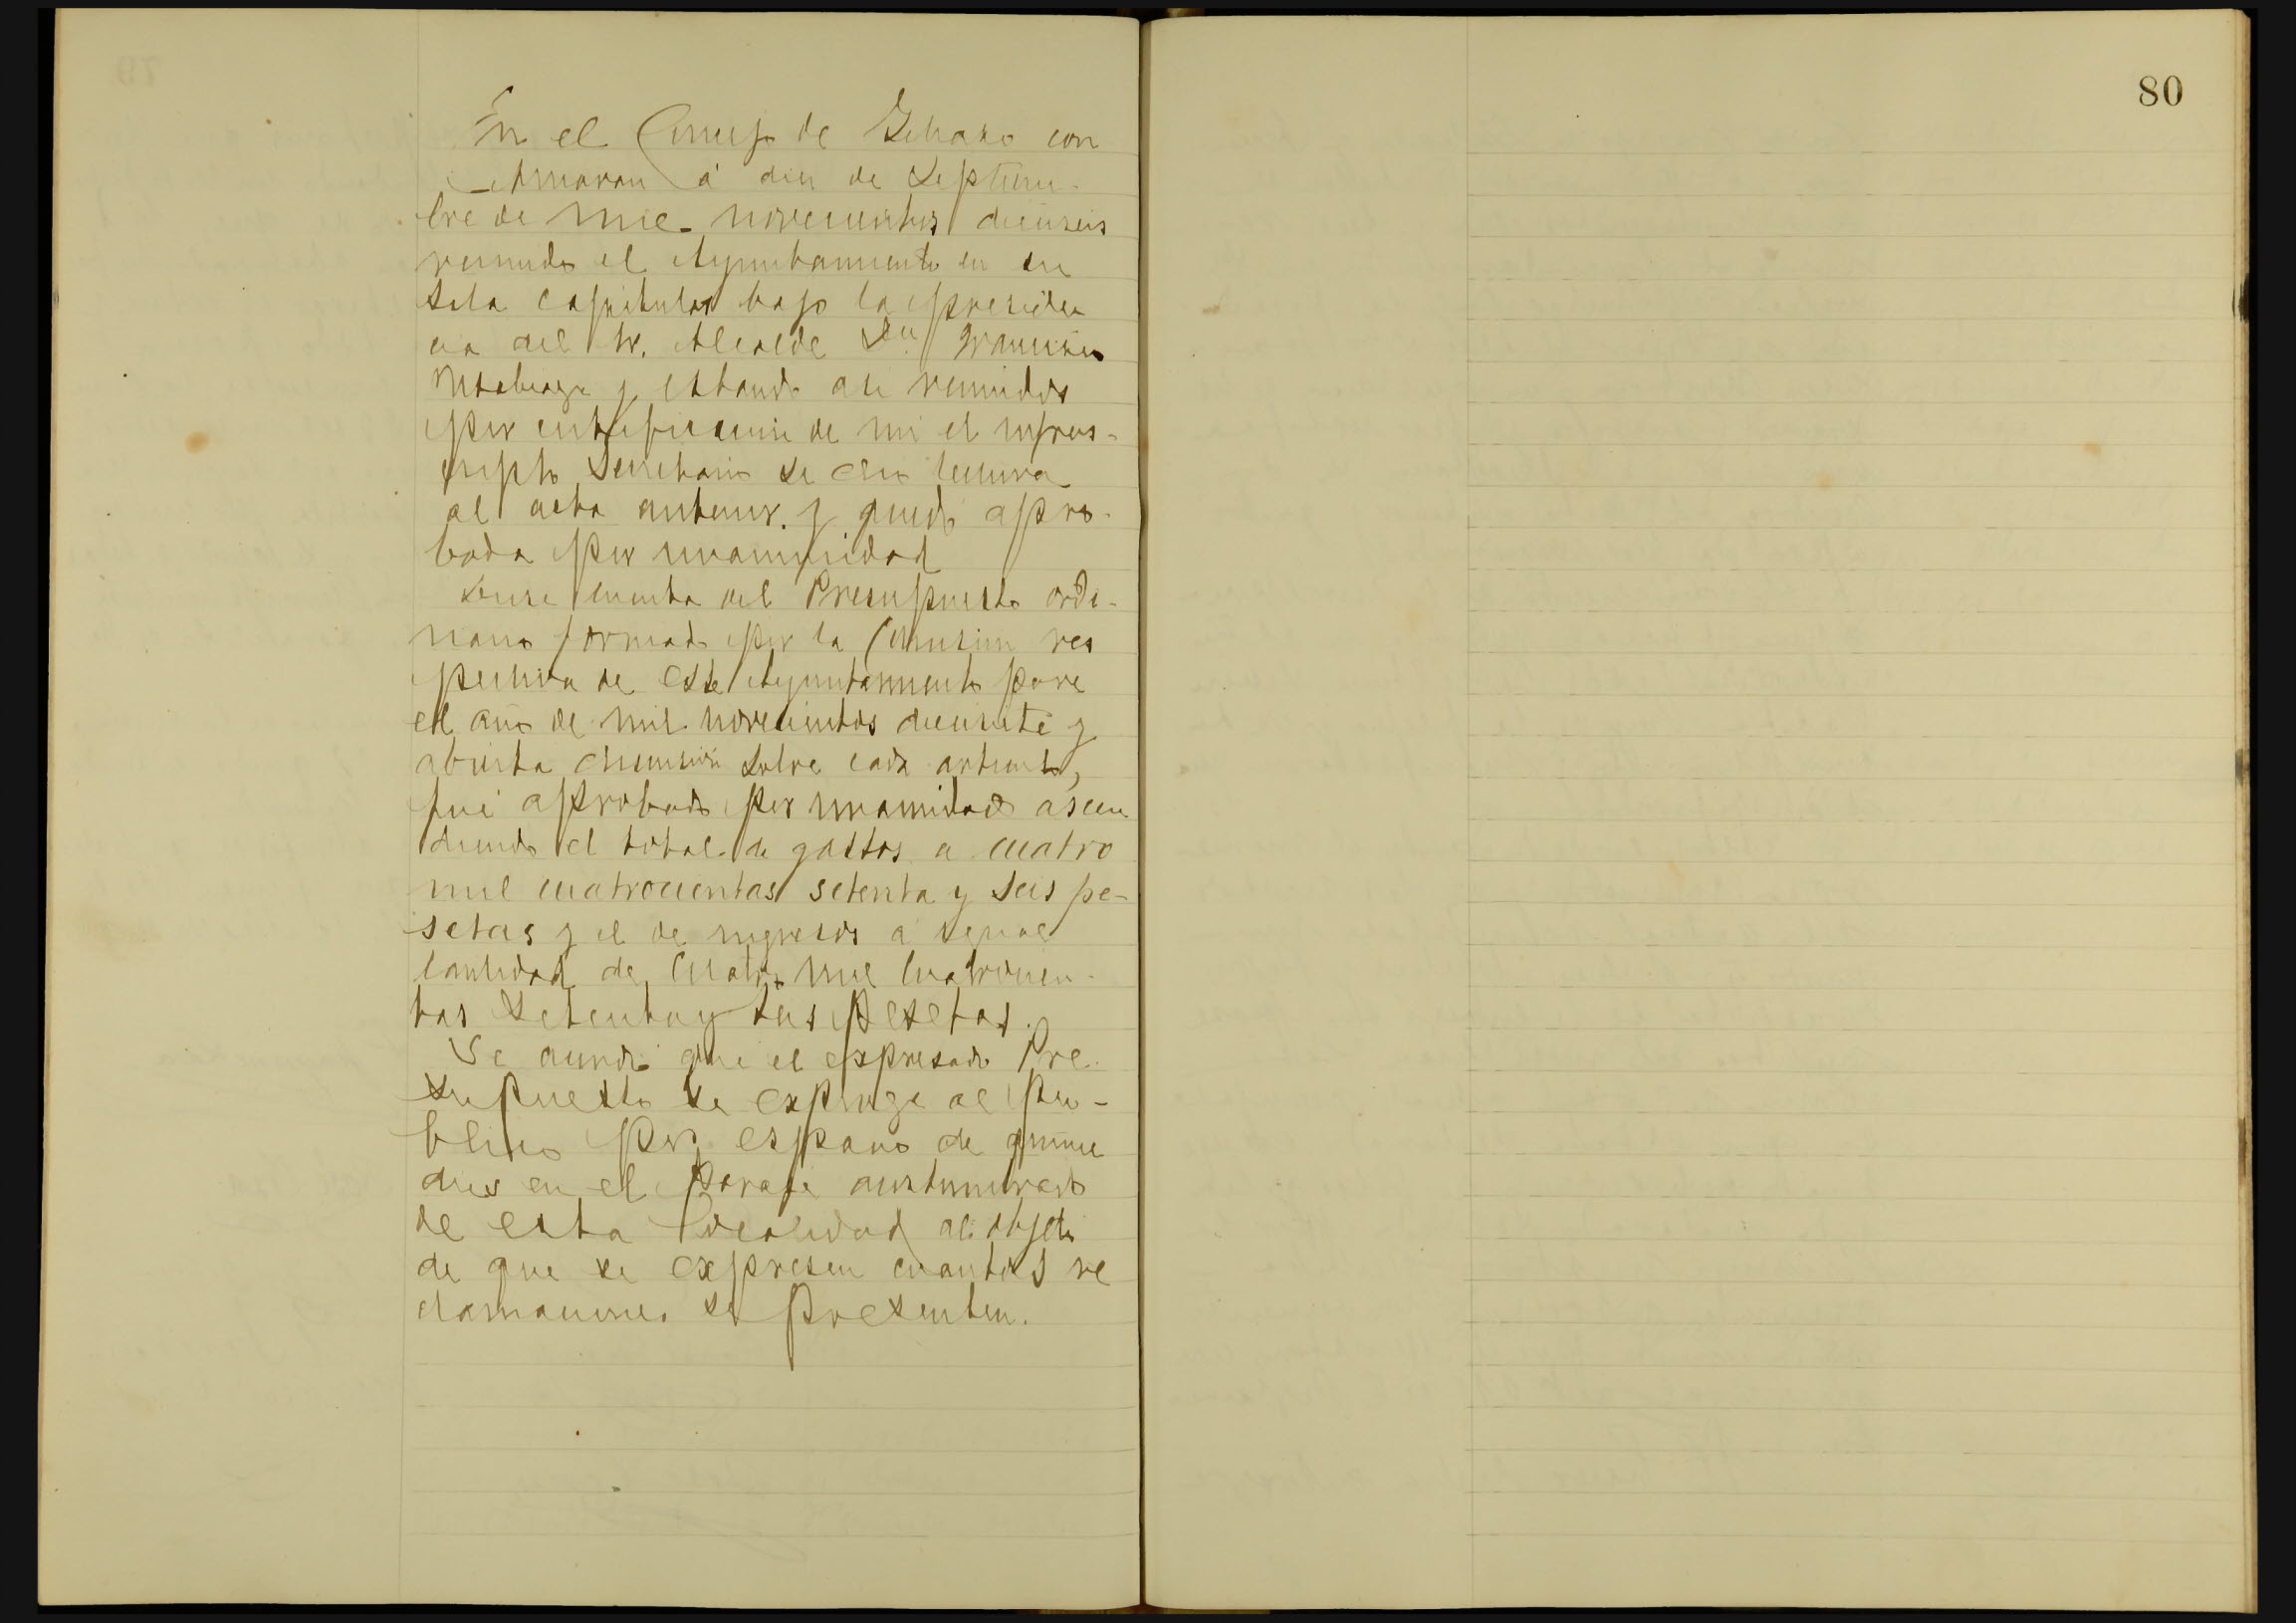 80
En el Concejo de con
á diez de Septiem-
bre de mil novecientos dieciseis
reunido el Ayuntamiento en su
Sala capitular bajo la presiden
cia del Sr. Alcalde Dn Francisco
y estando asi reunidos
por de mi el infras-
cripto Secretario se dio lectura
al acta anterior. y quedó apro-
bada por unanimidad
Diose cuenta del Presupuesto ordi-
nario formado por la Comision res
pectiva de este Ayuntamiento para
el año de mil novecientos diecisiete y
abierta discusión sobre cada articulo,
fué aprobado por unanimidad ascen
diendo el total de gastos a cuatro
mil cuatrocientas setenta y seis pe-
setas y el de ingresos a igual
cantidad de cuatro mil cuatrocien-
tas setenta y seis pesetas.
Se acordó que el expresado Pre-
supuesto se exponga al pu-
blico por espacio de quince
dias en el paraje acostumbrado
de esta localidad al objeto
de que se expresen cuantas re
clamaciones se presenten.